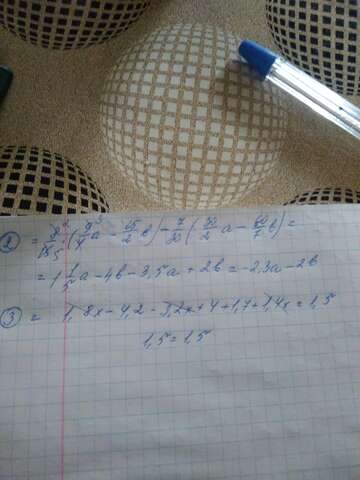 ② = 8/15 · (9/4 a − 15/2 b) − 7/30 ( 30/2 a − 60/7 b) =
= 1 1/5 a − 4b − 3,5a + 2b = −2,3a − 2b
③ = 1,8x − 4,2 − 3,2x + 4 + 1,7 + 1,4x = 1,5
1,5 = 1,5